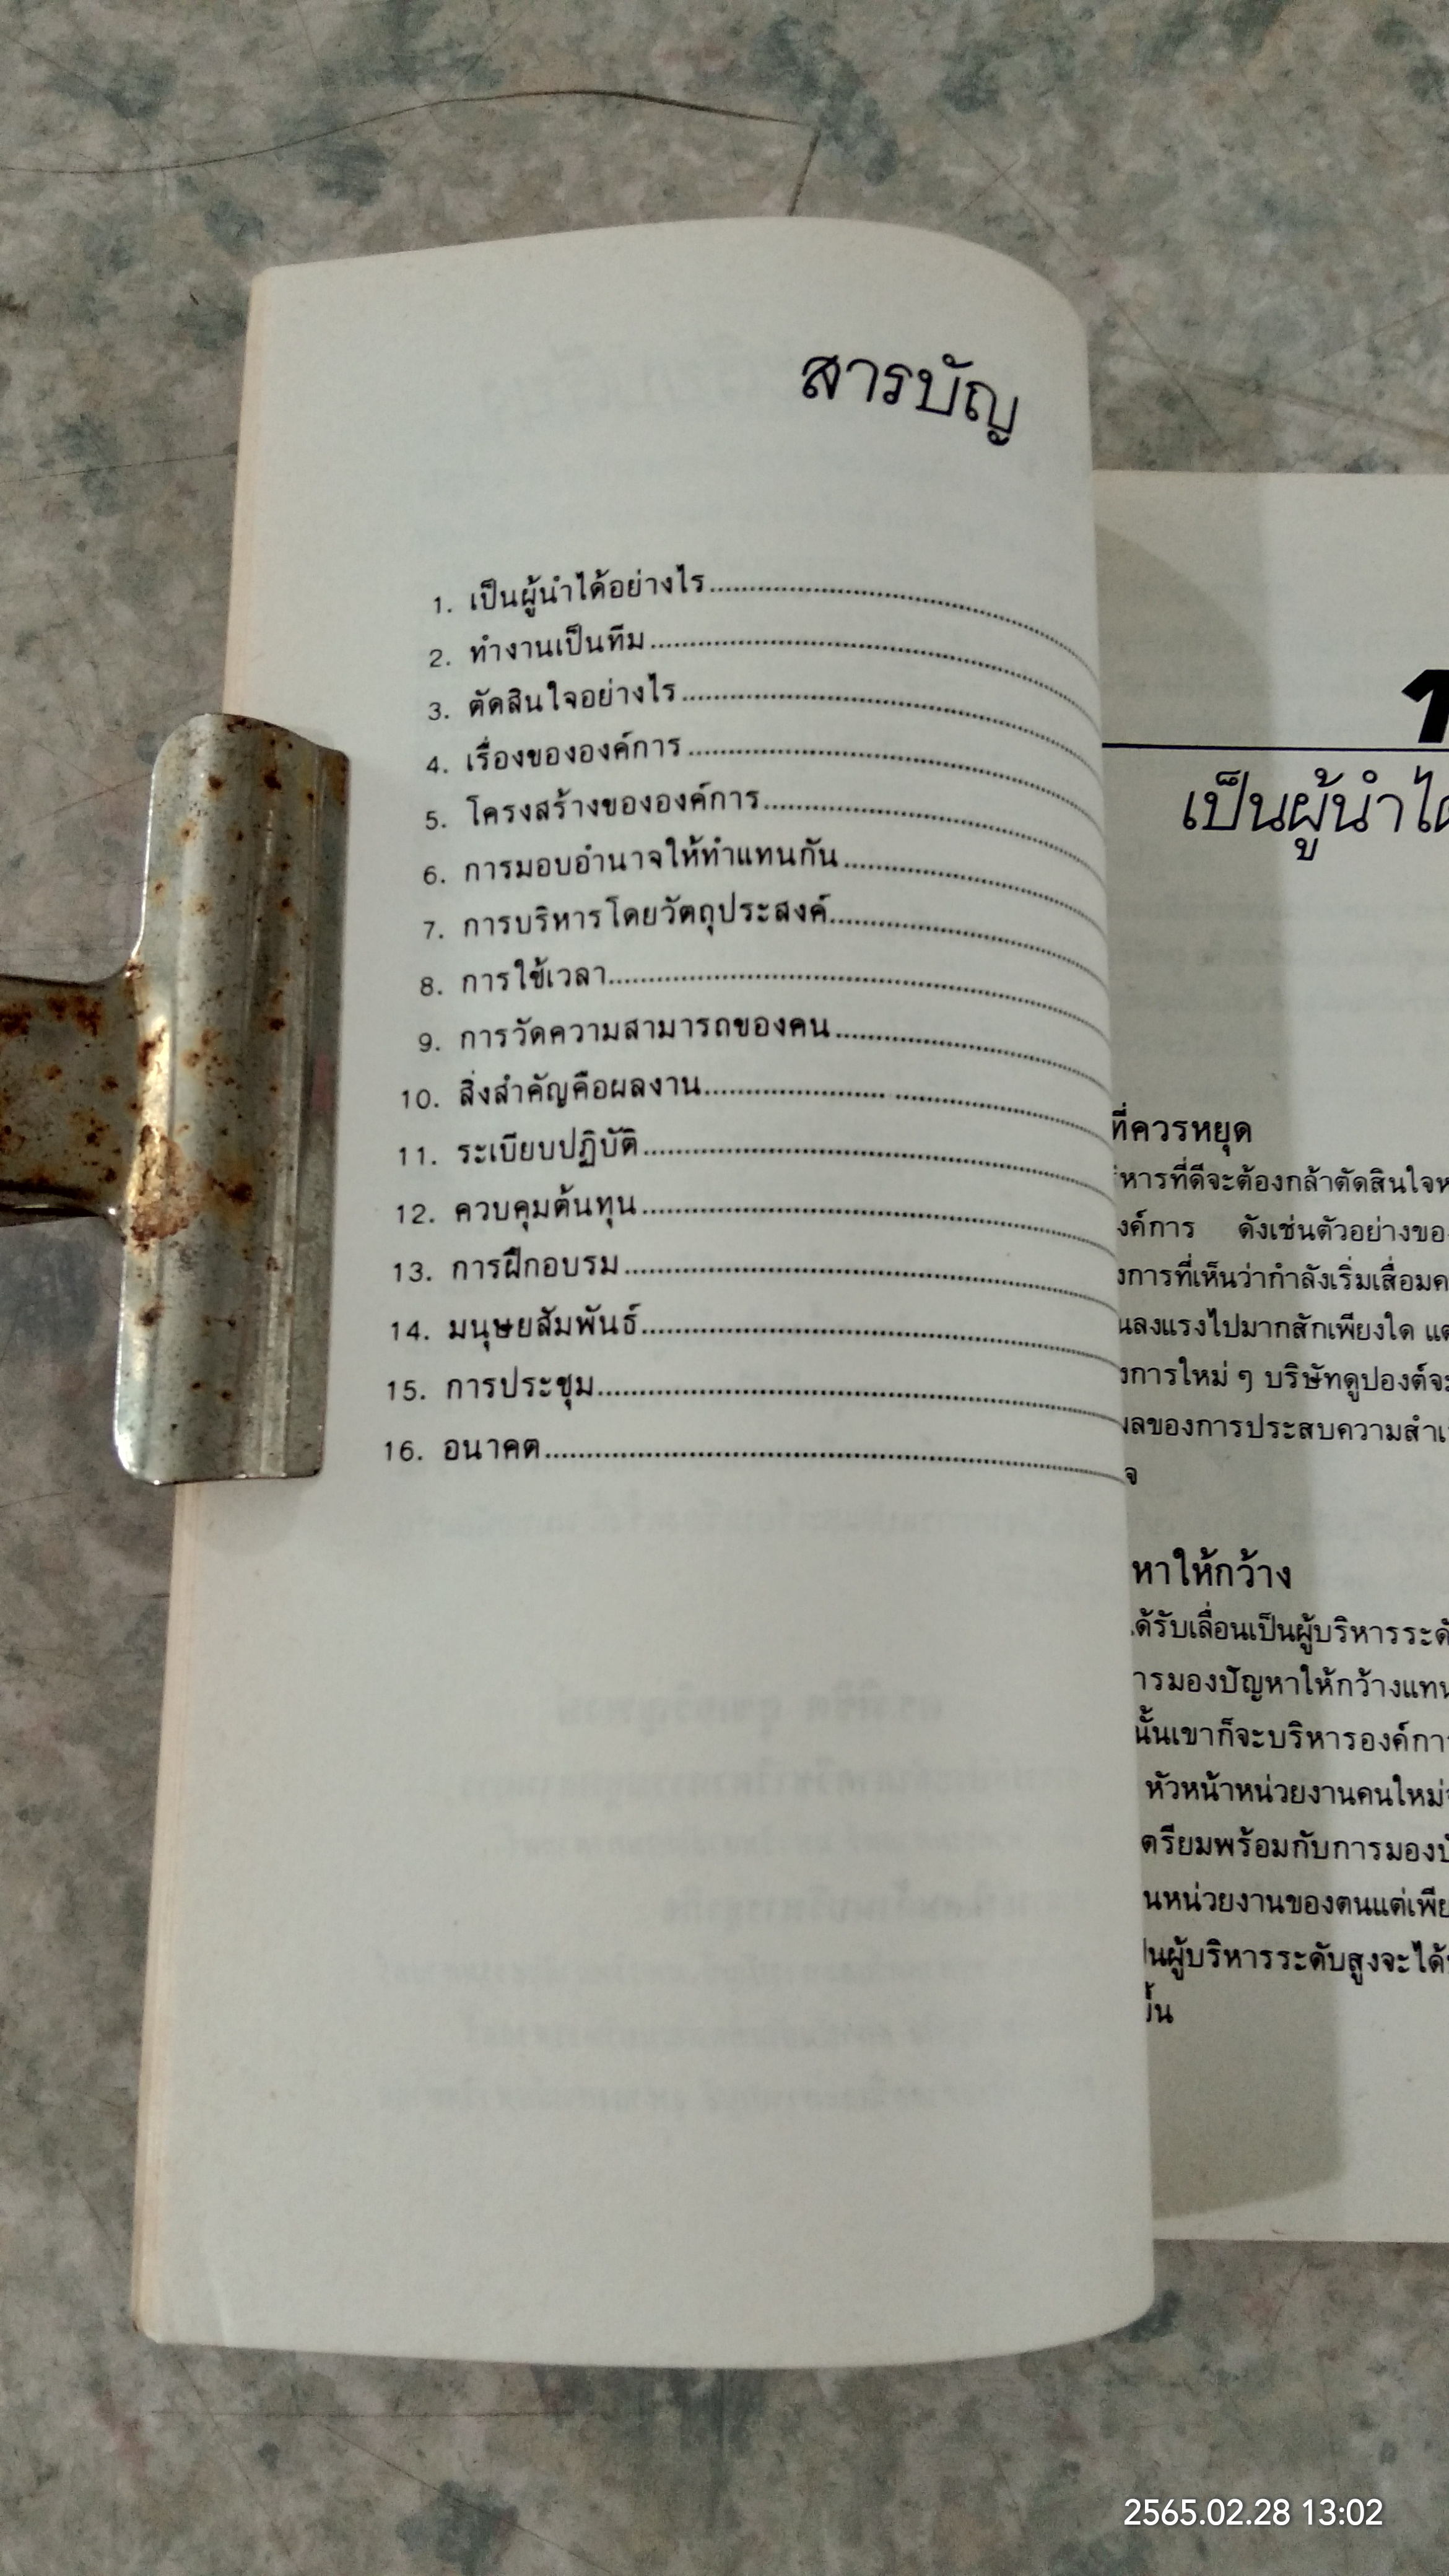 สารบัญ
1. เป็นผู้นำได้อย่างไร
2. ทำงานเป็นทีม
3. ตัดสินใจอย่างไร
4. เรื่องขององค์การ
5. โครงสร้างขององค์การ
6. การมอบอำนาจให้ทำแทนกัน
7. การบริหารโดยวัตถุประสงค์
8. การใช้เวลา
9. การวัดความสามารถของคน
10. สิ่งสำคัญคือผลงาน
11. ระเบียบปฏิบัติ
12. ควบคุมต้นทุน
13. การฝึกอบรม
14. มนุษยสัมพันธ์
15. การประชุม
16. อนาคต
1
เป็นผู้นำได้
ที่ควรหยุด
หารที่ดีจะต้องกล้าตัดสินใจ
งค์การ ดังเช่นตัวอย่างของ
การที่เห็นว่ากำลังเริ่มเสื่อม
ลงแรงไปมากสักเพียงใด
การใหม่ ๆ บริษัทดูปองต์จะ
ผลของการประสบความ
จ
หาให้กว้าง
ได้รับเลื่อนเป็นผู้บริหาร
การมองปัญหาให้กว้าง
นั้นเขาก็จะบริหารองค์การ
หัวหน้าหน่วยงานคนใหม่
ตรียมพร้อมกับการมอง
นหน่วยงานของตนแต่
เป็นผู้บริหารระดับสูงจะได้
ขึ้น
2565.02.28 13:02